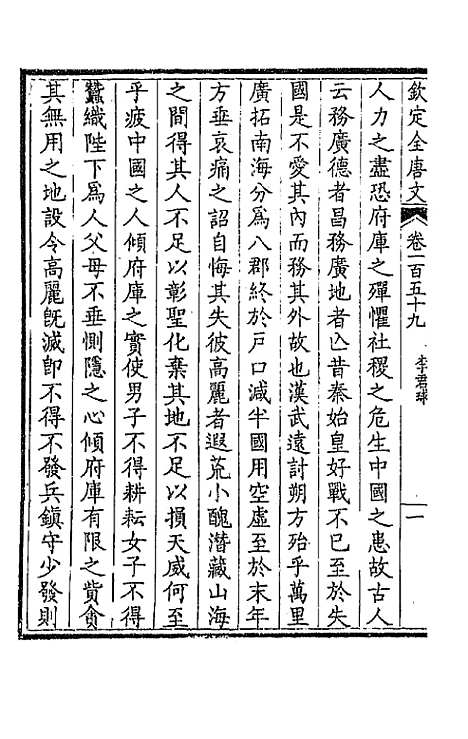 欽定全唐文 卷一百五十九 李君球 一
人力之盡恐府庫之殫懼社稷之危生中國之患故古人
云務廣德者昌務廣地者亾昔秦始皇好戰不已至於失
國是不愛其內而務其外故也漢武遠討朔方殆乎萬里
廣拓南海分爲八郡終於戸口減半國用空虛至於末年
方垂哀痛之詔自悔其失彼高麗者遐荒小醜潛藏山海
之間得其人不足以彰聖化棄其地不足以損天威何至
乎疲中國之人傾府庫之實使男子不得耕耘女子不得
蠶織陛下爲人父母不垂惻隱之心傾府庫有限之貲貪
其無用之地設令高麗旣滅卽不得不發兵鎭守少發則